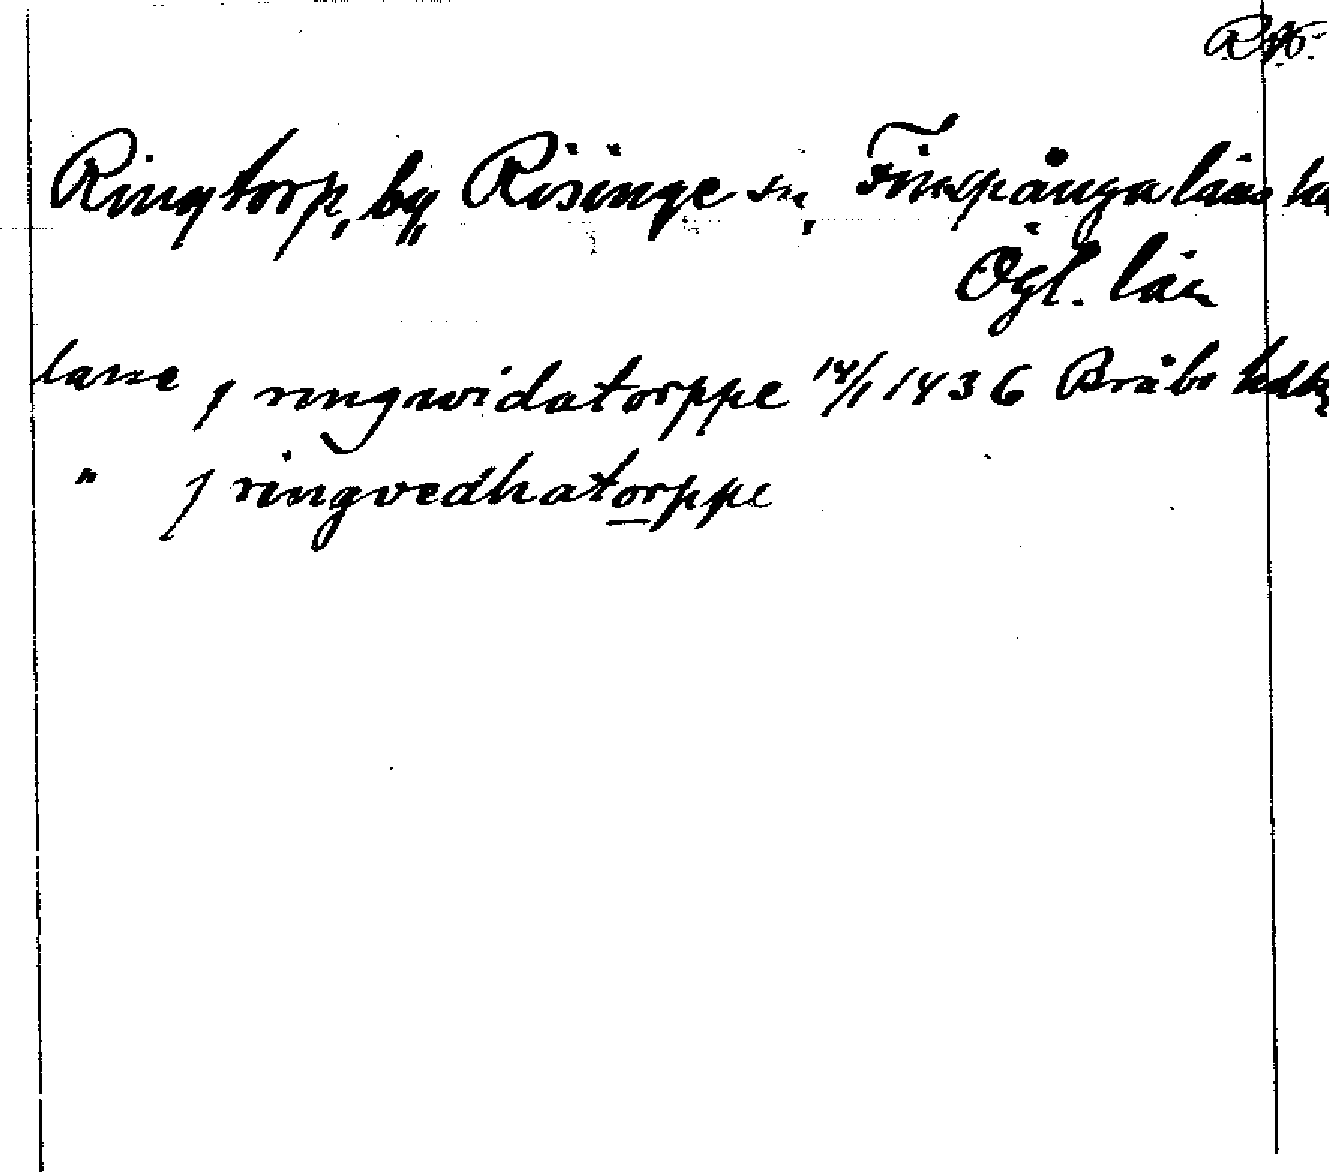 Ringtorp, by, Risinge sn, Finspånga läns hd
Ögl. län
lasse j ringwidatorppe 14/1 1436 Bråbo hdsb
" j ringvedhatorppe